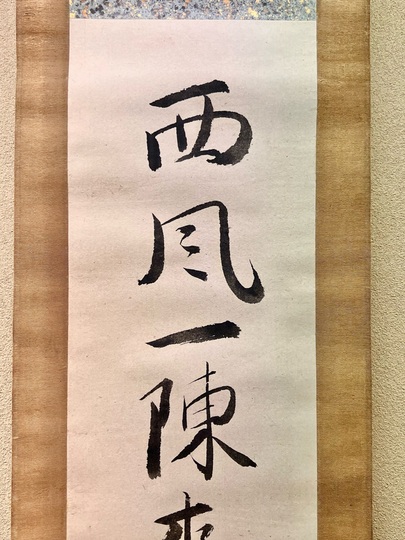 西風一陳